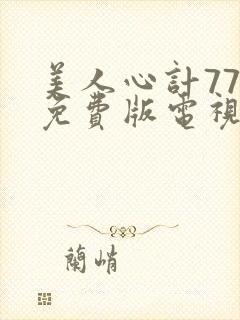 美人心計77
免費版電視
蘭峭